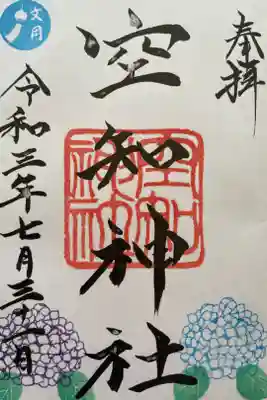 奉拝
空知神社
令和三年七月三十一日
文月
空知
神社